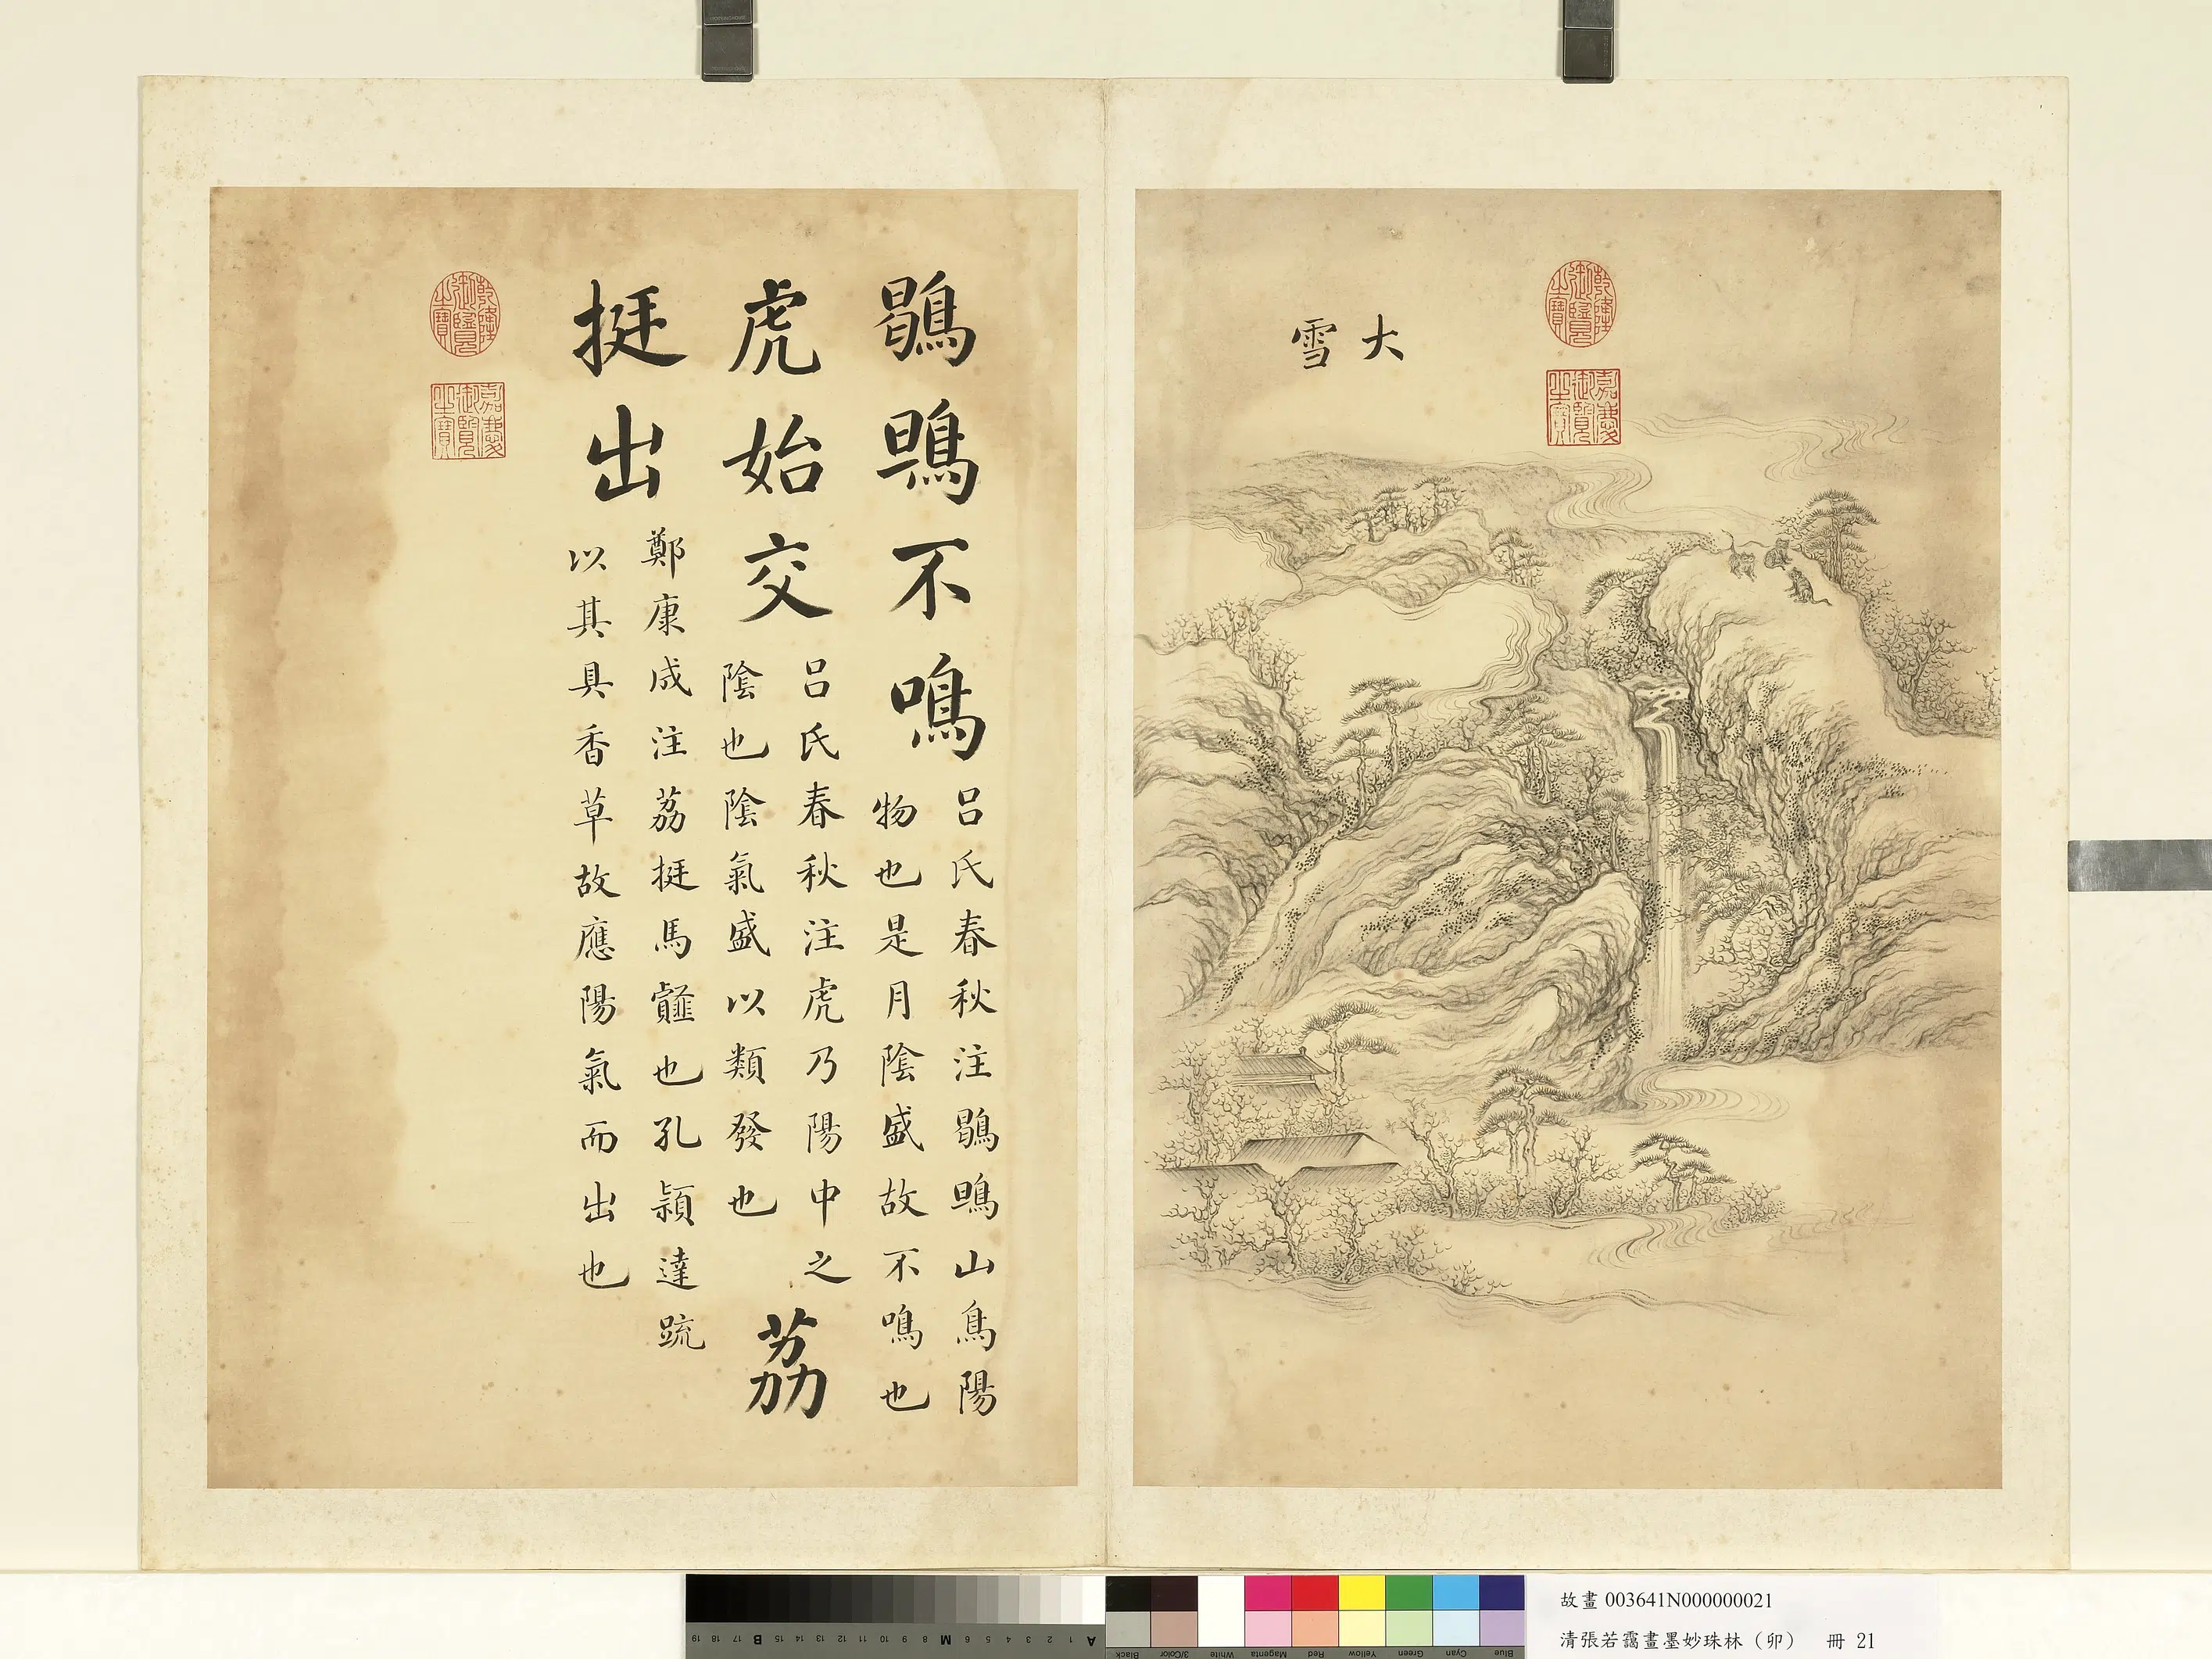 大雪
乾隆御覽之寶
嘉慶御覽之寶
鶡鴠不鳴
呂氏春秋注鶡鴠山鳥陽
物也是月陰盛故不鳴也
虎始交
呂氏春秋注虎乃陽中之
陰也陰氣盛以類發也
荔
挺出
鄭康成注荔挺馬䪥也孔穎達疏
以其具香草故應陽氣而出也
乾隆御覽之寶
嘉慶御覽之寶
19 18 17 B 15 14 13 12 11 10 9 8 M 6 5 4 3 2 1 A
Black 3/Color White Magenta Red Yellow Green Cyan Blue
故畫 003641N000000021
清張若靄畫墨妙珠林（卯） 冊 21